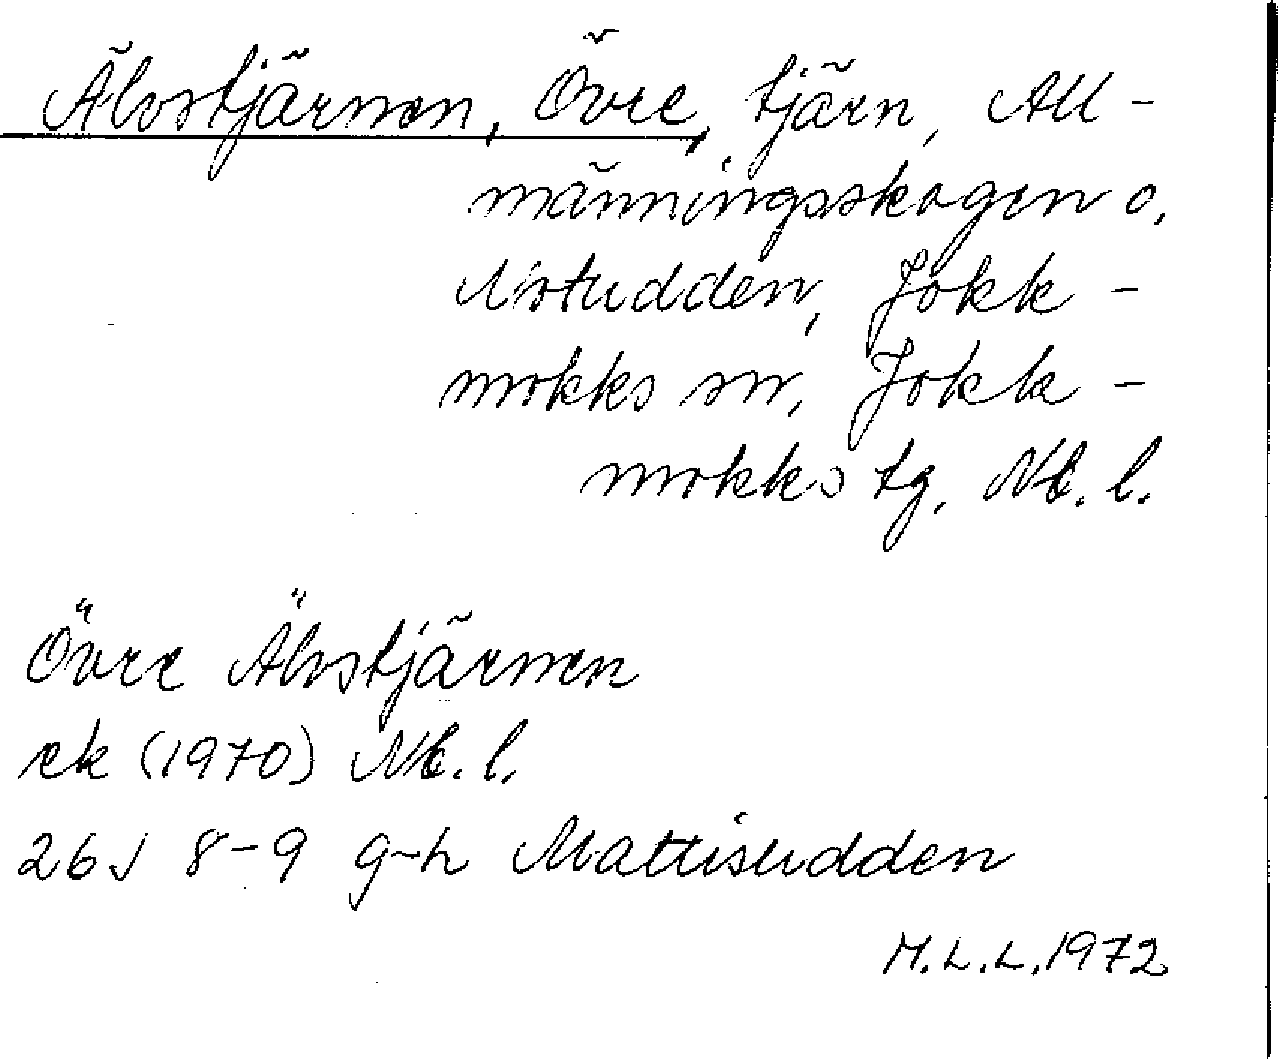 Älvstjärnen, Övre, tjärn, All-
männingsskogen o.
Notudden, Jokk-
mokks sn, Jokk-
mokks tg, Nb. l.
Övre Älvstjärnen
ek (1970) Nb. l.
26J 8-9 g-h Mattisudden
M.L.L. 1972